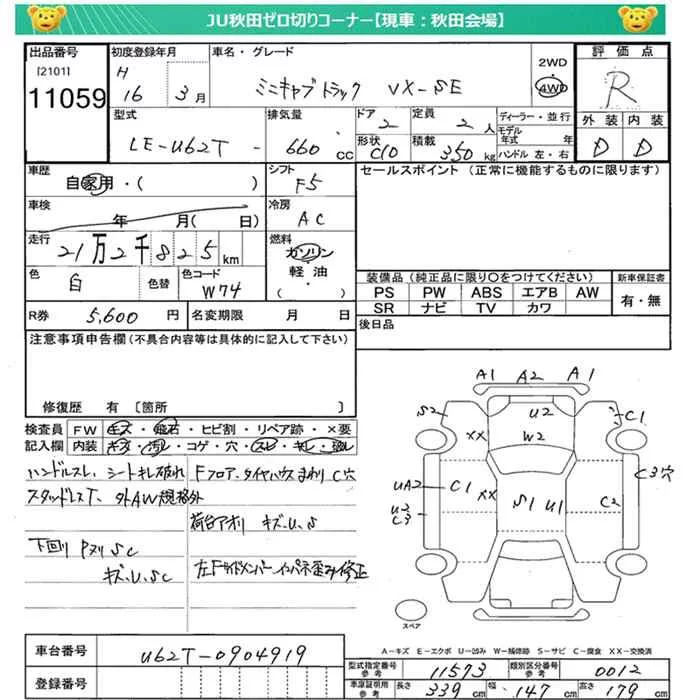 JU秋田ゼロ切りコーナー【現車：秋田会場】
出品番号 [2101] 11059
初度登録年月 H 16 3月
車名・グレード ミニキャブトラック VX-SE
2WD 4WD
評価点 R
外装 D 内装 D
型式 LE-U62T-
排気量 660 cc
ドア 2 形状 C10
定員 2人 積載 350 kg
ディーラー・並行
モデル年式 年
ハンドル 左・右
車歴 自家用・( )
シフト F5
セールスポイント (正常に機能するものに限ります)
車検 年 月( 日)
冷房 AC
走行 21万2千825km
燃料 ガソリン・軽油・( )
色 白 色替 色コード W74
装備品 (純正品に限り○をつけてください)
新車保証書 有・無
PS PW ABS エアB AW
SR ナビ TV カワ
R券 5,600円 名変期限 月 日
後日品
注意事項申告欄 (不具合内容等は具体的に記入して下さい)
修復歴 有 [箇所
検査員記入欄
FW キズ・飛石・ヒビ割・リペア跡・×要
内装 キズ・汚レ・コゲ・穴・スレ・キレ・破レ
ハンドルスレ、シートキレ破れ Fフロア、タイヤハウスまわりC穴
スタッドレスT、外AW規格外
荷台アオリ キズ、U、S
下回り Pヌリ SC
キズ、U、SC
左Fサイドメンバー、インパネ歪み修正
A1 A2 A1
S2 U2 C1
XX W2
C3穴
UA2 C1 XX S1 U1 C2
U3
C3
スペア
A-キズ E-エクボ U-凹み W-補修跡 S-サビ C-腐食 XX-交換済
車台番号 U62T-0904919
登録番号
型式指定番号 参考 11573
類別区分番号 参考 0012
車庫証明用 参考 長さ 339cm 幅 147cm 高さ 179cm